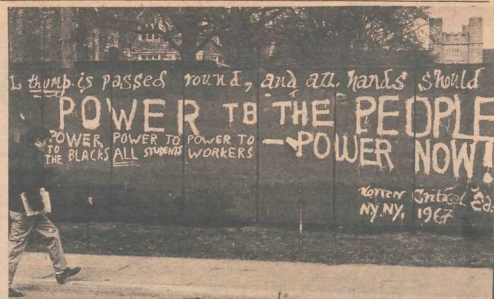 L thump is passed round, and all hands should
POWER TO THE PEOPLE
POWER TO THE BLACKS POWER TO ALL STUDENTS POWER TO WORKERS —POWER NOW!
NY NY, 1967